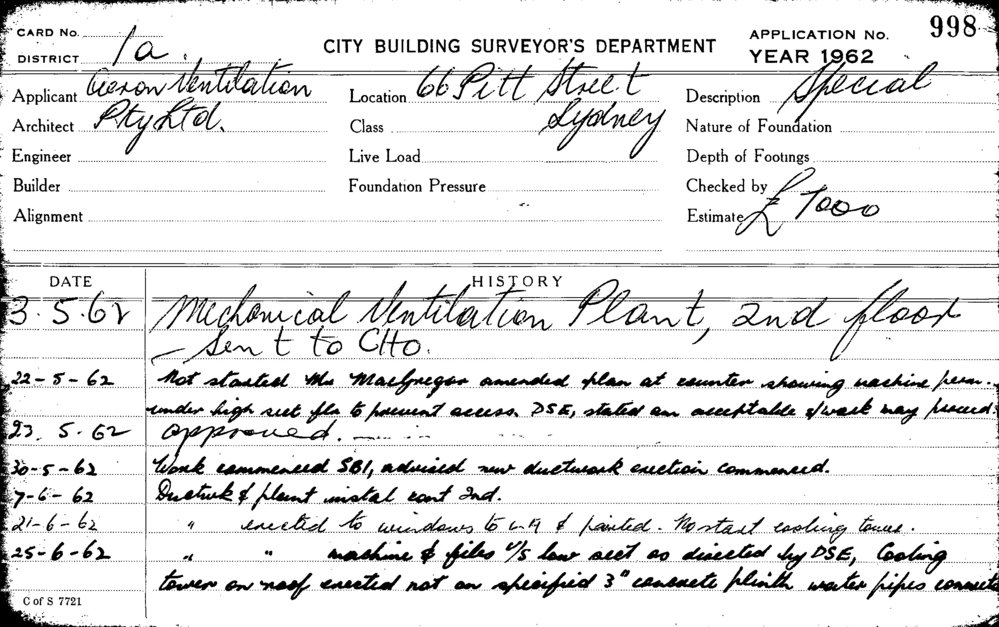 CARD No.
998
DISTRICT 1a.
CITY BUILDING SURVEYOR'S DEPARTMENT
APPLICATION No.
YEAR 1962
Applicant Aeron Ventilation
Location 66 Pitt Street
Description Special
Architect Pty Ltd.
Class Sydney
Nature of Foundation
Engineer
Live Load
Depth of Footings
Builder
Foundation Pressure
Checked by
Alignment
Estimate £ 7000
DATE
HISTORY
3.5.62 Mechanical Ventilation Plant, 2nd floor
- Sent to CHO.
22-5-62 Not started Mr MacGregor amended plan at counter showing machine
under high sect to prevent access. DSE, stated acceptable & work may proceed.
23.5.62 approved.
30-5-62 Work commenced SBI, advised new ductwork erection commenced.
7-6-62 Ductwk & plant instal cont 2nd.
21-6-62 " erected to windows to & painted. No start cooling tower.
25-6-62 " " machine & u/s low sect as directed by DSE, Cooling
tower on roof erected not on specified 3" concrete plinth water pipes
C of S 7721